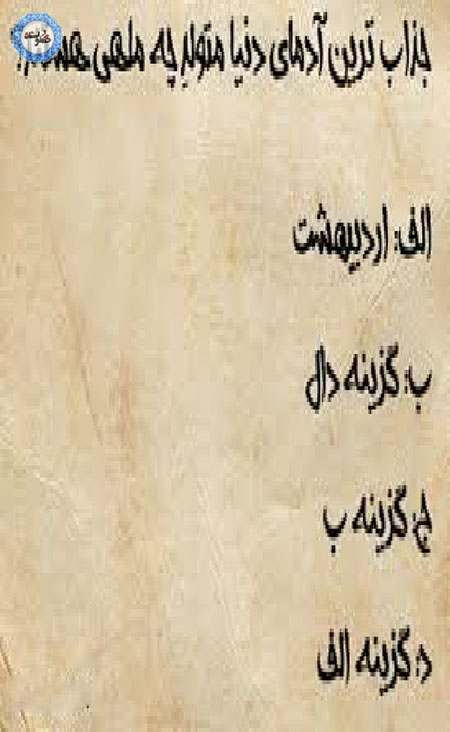 جذاب ترین آدمای دنیا متولد چه ماهی
الف: اردیبهشت
ب: گزینه دال
ج: گزینه ب
د: گزینه الف